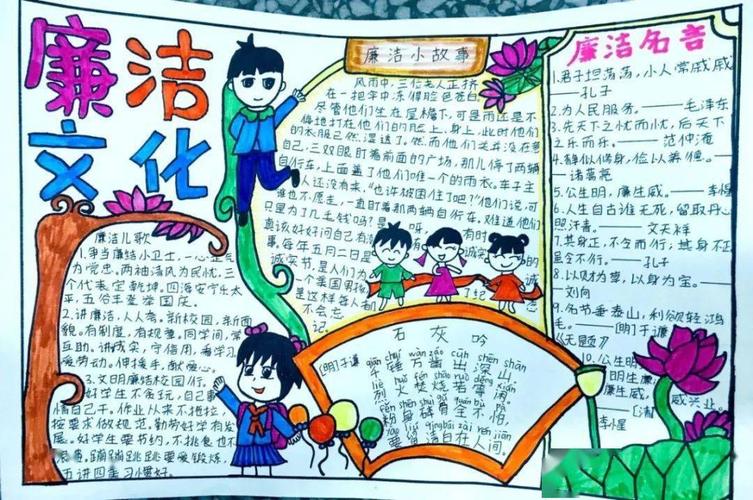 廉洁
文化
廉洁儿歌
1.争当廉洁小卫士,一心正气
为党忠,两袖清风为民忧,三
个代表定乾坤。四海安宁生太
平,五谷丰登举国庆。
2.讲廉洁,人人夸。新校园,新面
貌。有制度,有规章。同学间,常
互助。讲诚实,守信用,看学习。
爱劳动。伸援手,献爱心。
3.文明廉洁校园行。
好学生不贪玩,自己事
情自己干。作业从来不拖拉,
按要求做规范。勤劳好学有发
展。好学生要节约,不挑食也不
浪费。蹦蹦跳跳要爱锻炼,
五讲四美习惯好。
廉洁小故事
风雨中,三位老人正挤
在一把伞中冻得脸色苍白,
尽管他们坐在屋檐下,可是雨还是不
停地打在他们的脸上、身上,此时他们
的衣服已然湿透了。然而他们关并没在意
自己,三双眼盯着前面的广场,那儿停了两辆
自行车,上面盖了他们唯一个的雨衣。车子主
人还没有来,“也许被困住了吧?”他们说,可
谁也不愿走,一直盯着那两辆自行车,难道他们
只里为了几毛钱吗?是呀,有时候
真该好好问自己有没有
事。每年五月二日是
诚实节,是人们为
一个美国男孩
是这样每人者
不会忘
记。
石灰吟
[明]于谦
qiān chuí wàn záo cūh shēn shān
千锤万凿出深山,
liè huǒ fén shāo ruò děng xián
烈火焚烧若等闲
fěn shēn suì gǔ quán bù pà
粉身碎骨全不怕,
yào liú qīngbái zài rén jiān
要留清白在人间。
廉洁名言
1.君子坦荡荡,小人常戚戚
——孔子
2.为人民服务。——毛泽东
3.先天下之忧而忧,后天下
之乐而乐。——范仲淹
4.静以修身,俭以养德。——
诸葛亮
5.公生明,廉生威。——李惺
6.人生自古谁无死,留取丹心
照汗青。——文天祥
7.其身正,不令而行;其身不正,
虽令不行。——孔子
8.以财为草,以身为宝。——
刘向
9.名节重泰山,利欲轻鸿
毛。——[明]于谦
《无题》
10.公生明,
明生廉,
威兴业。
[清]
李惺